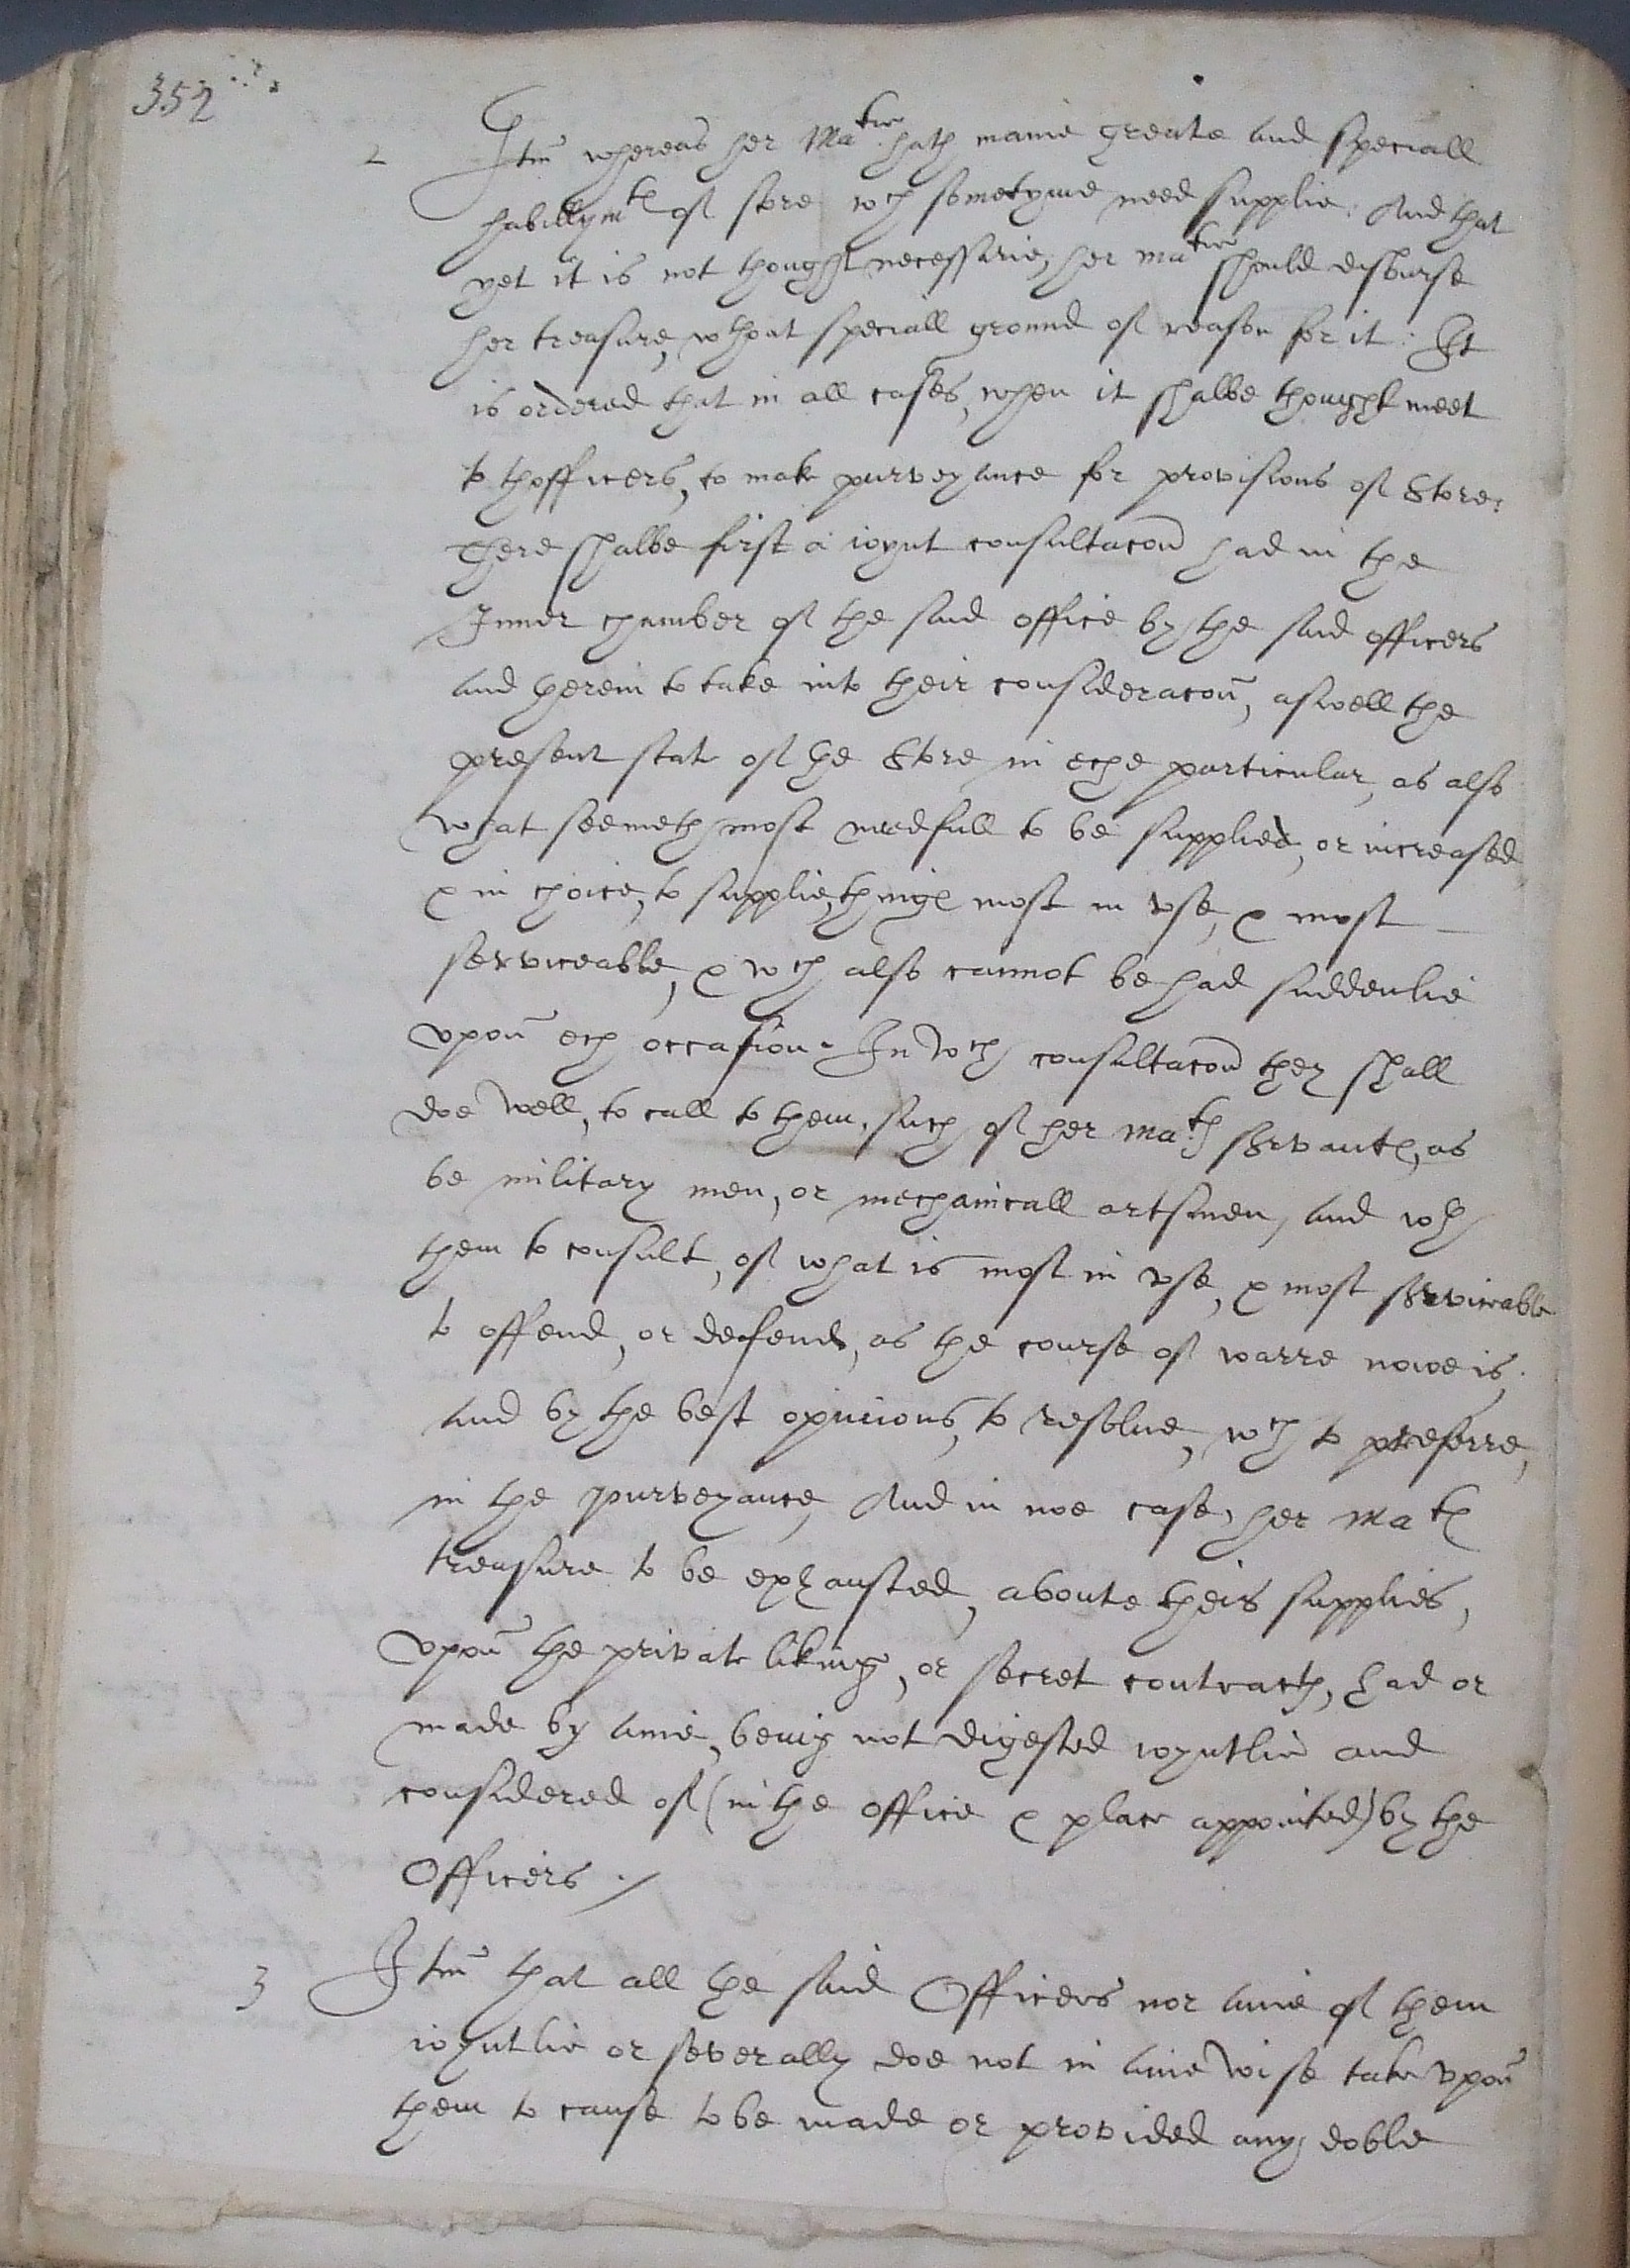 352
2 Itm whereas her Ma:tie hath manie greate and speciall
habillymtes of store wch sometyme need supplie: And that
yet it is not thought necessarie, her matie should disburse
her treasure, wthout speciall ground of reason for it: It
is ordered that in all cases, when it shalbe thought meet
to thofficers, to make purveyance for provisions of Store:
There shalbe first a ioynt consultacon had in the
Inner chamber of the said office by the said officers
and herein to take into their consideracon, aswell the
present state of the Store in eche particular, as also
what seemeth most needfull to be supplied, or increased
& in choice, to supplie, thinges most in vse, & most
serviceable, & wch also cannot be had suddenlie
vpon ech occasion. In wch consultacon they shall
doe well, to call to them, such of her mates servantes, as
be military men, or mechanicall artsmen, and wth
them to consult, of what is most in vse, & most serviceable
to offend, or defend, as the course of warre nowe is,
And by the best opinions, to resolue, wch to preferre,
in the purveyance, And in noe case, her mates
treasure to be exhausted, aboute theis supplies,
vpon the private liking, or secret contracts, had or
made by anie, being not digested ioyntlie and
considered of (in the office & place appointed) by the
Officers ./
3 Itm that all the said Officers nor anie of them
ioyntlie or severally doe not in anie wise take vpon
them to cause to be made or provided any doble